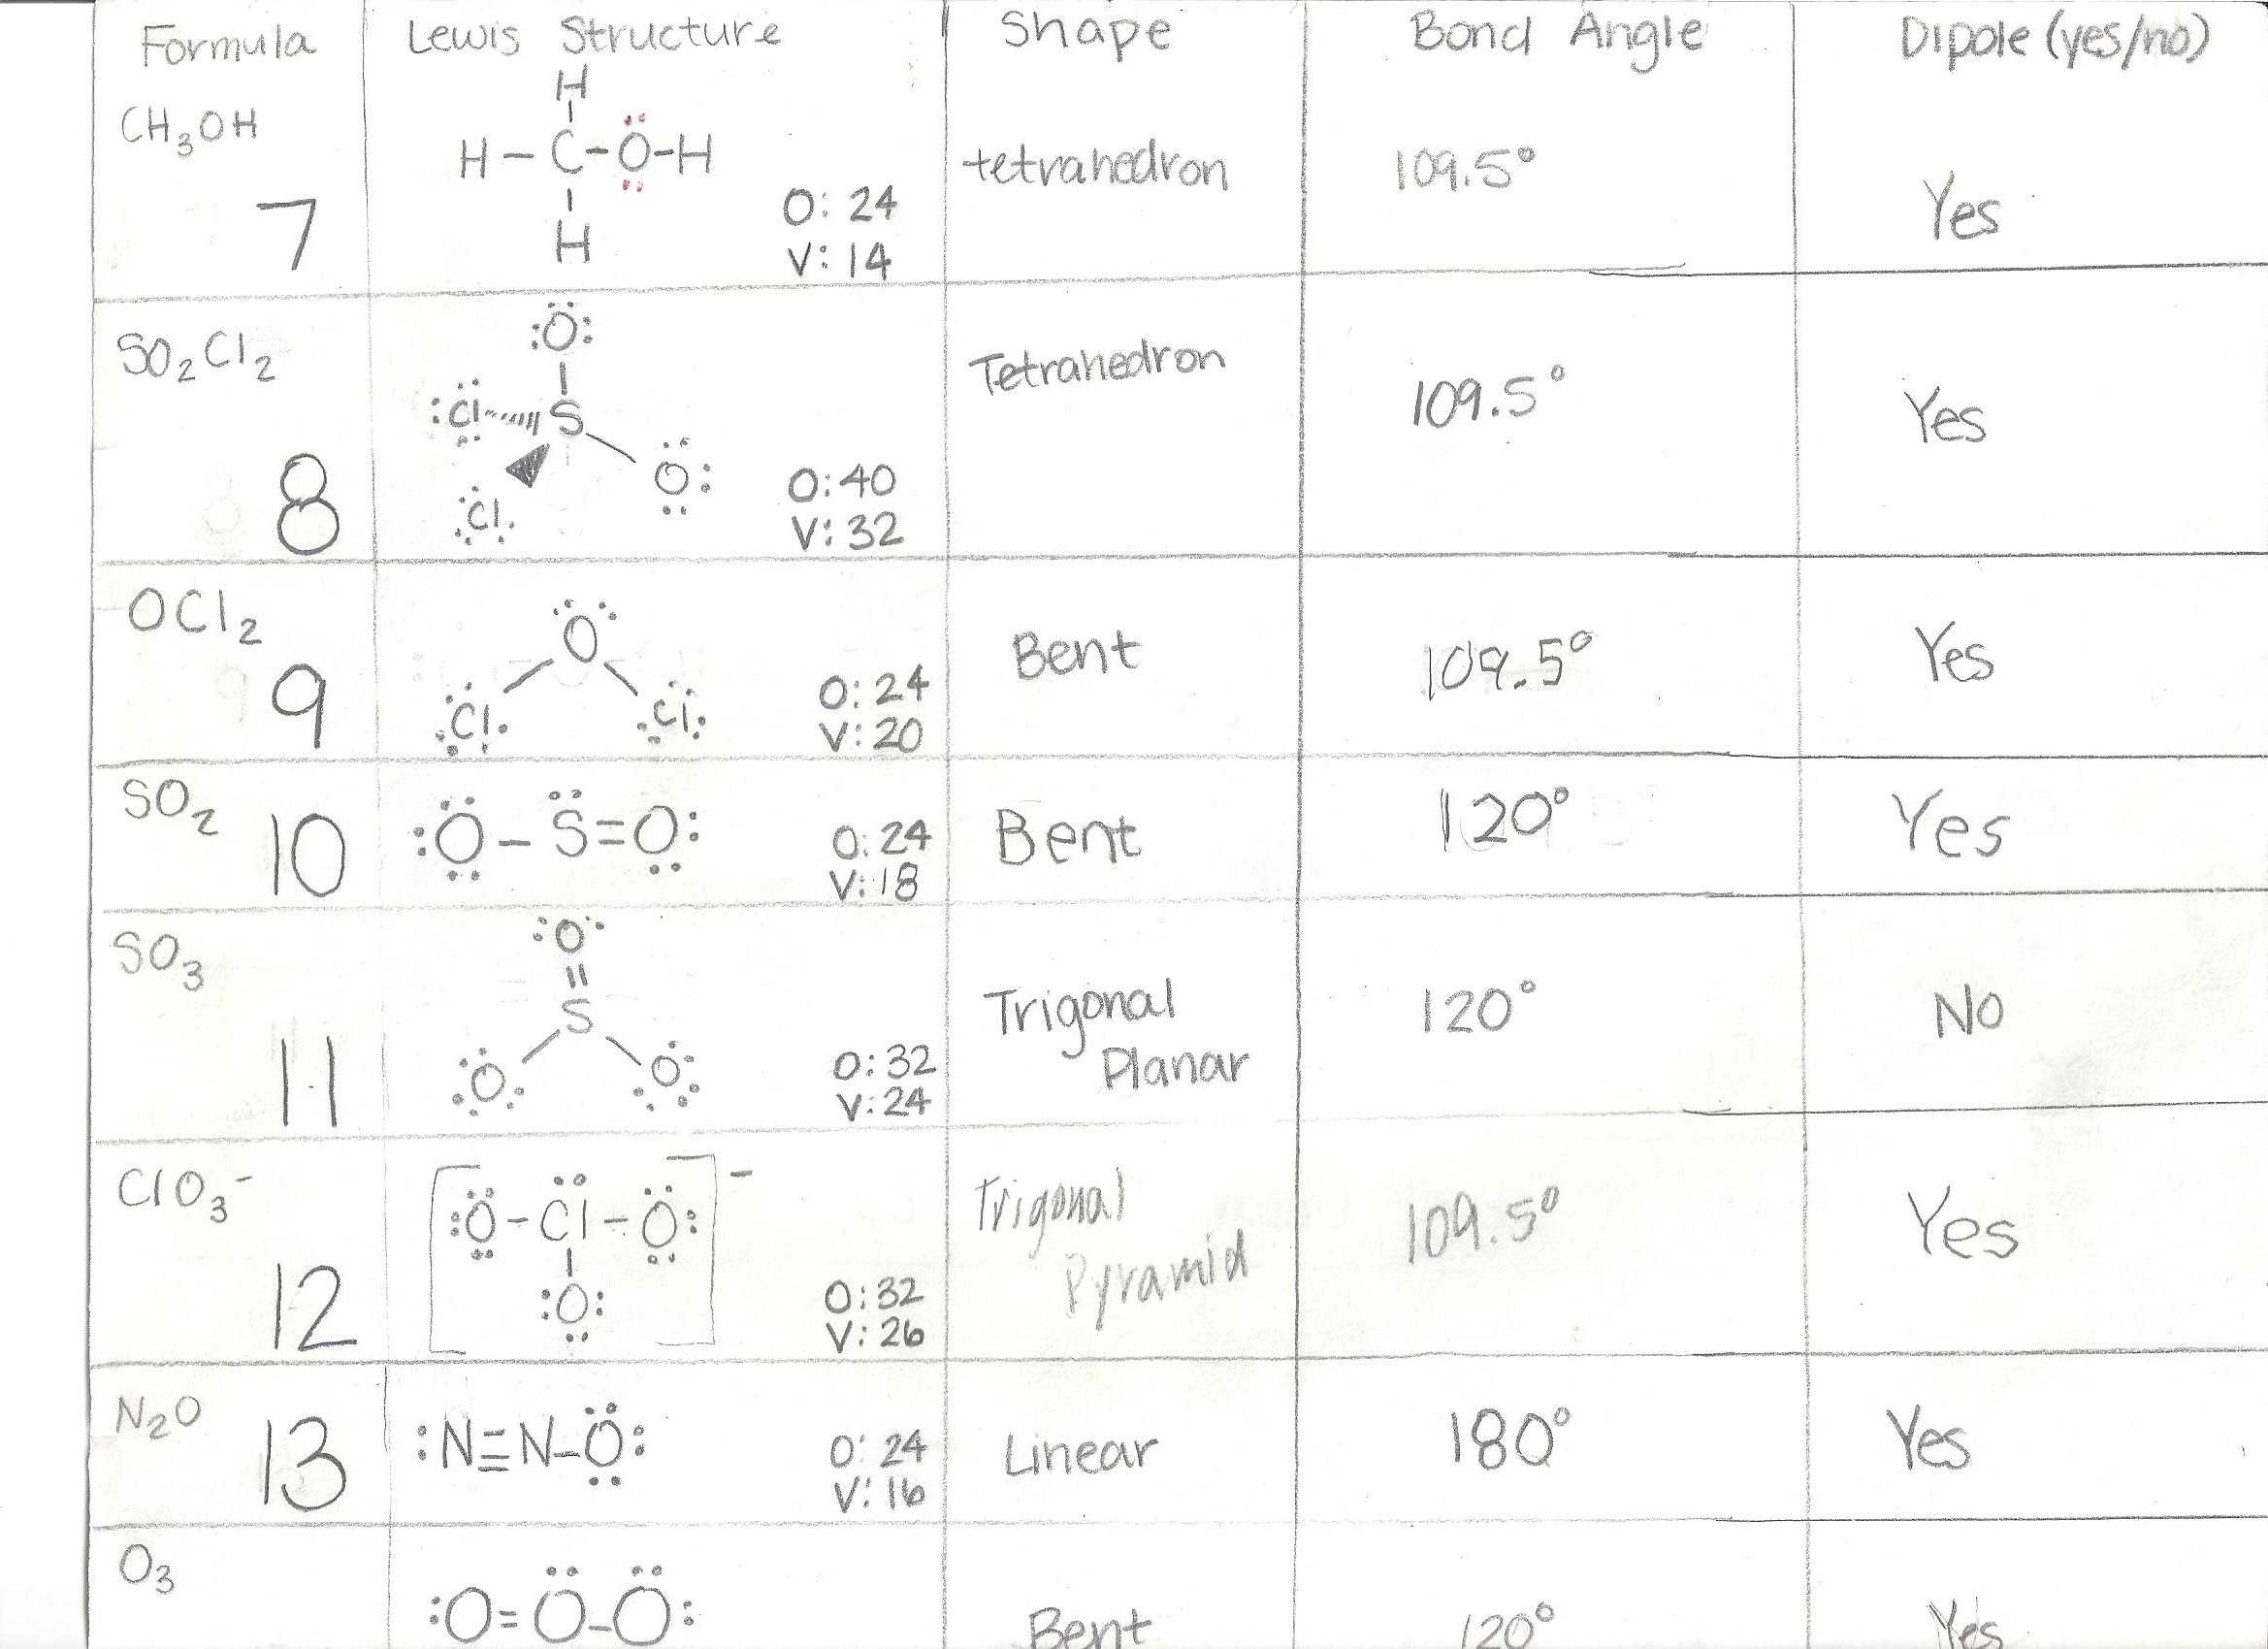 Formula Lewis Structure Shape Bond Angle Dipole (yes/no)
CH₃OH
H
H – C – O – H
H
7
O: 24
V: 14
tetrahedron
109.5°
Yes
SO₂Cl₂
O
Cl S
O
Cl
8
O: 40
V: 32
Tetrahedron
109.5°
Yes
OCl₂
O
Cl Cl
9
O: 24
V: 20
Bent
109.5°
Yes
SO₂
10
O – S = O
O: 24
V: 18
Bent
120°
Yes
SO₃
O
S
O O
11
O: 32
V: 24
Trigonal
Planar
120°
NO
ClO₃⁻
[O – Cl – O]⁻
O
12
O: 32
V: 26
Trigonal
Pyramid
109.5°
Yes
N₂O
13
:N≡N–O:
O: 24
V: 16
Linear
180°
Yes
O₃
:O=O–O:
Bent
120°
Yes